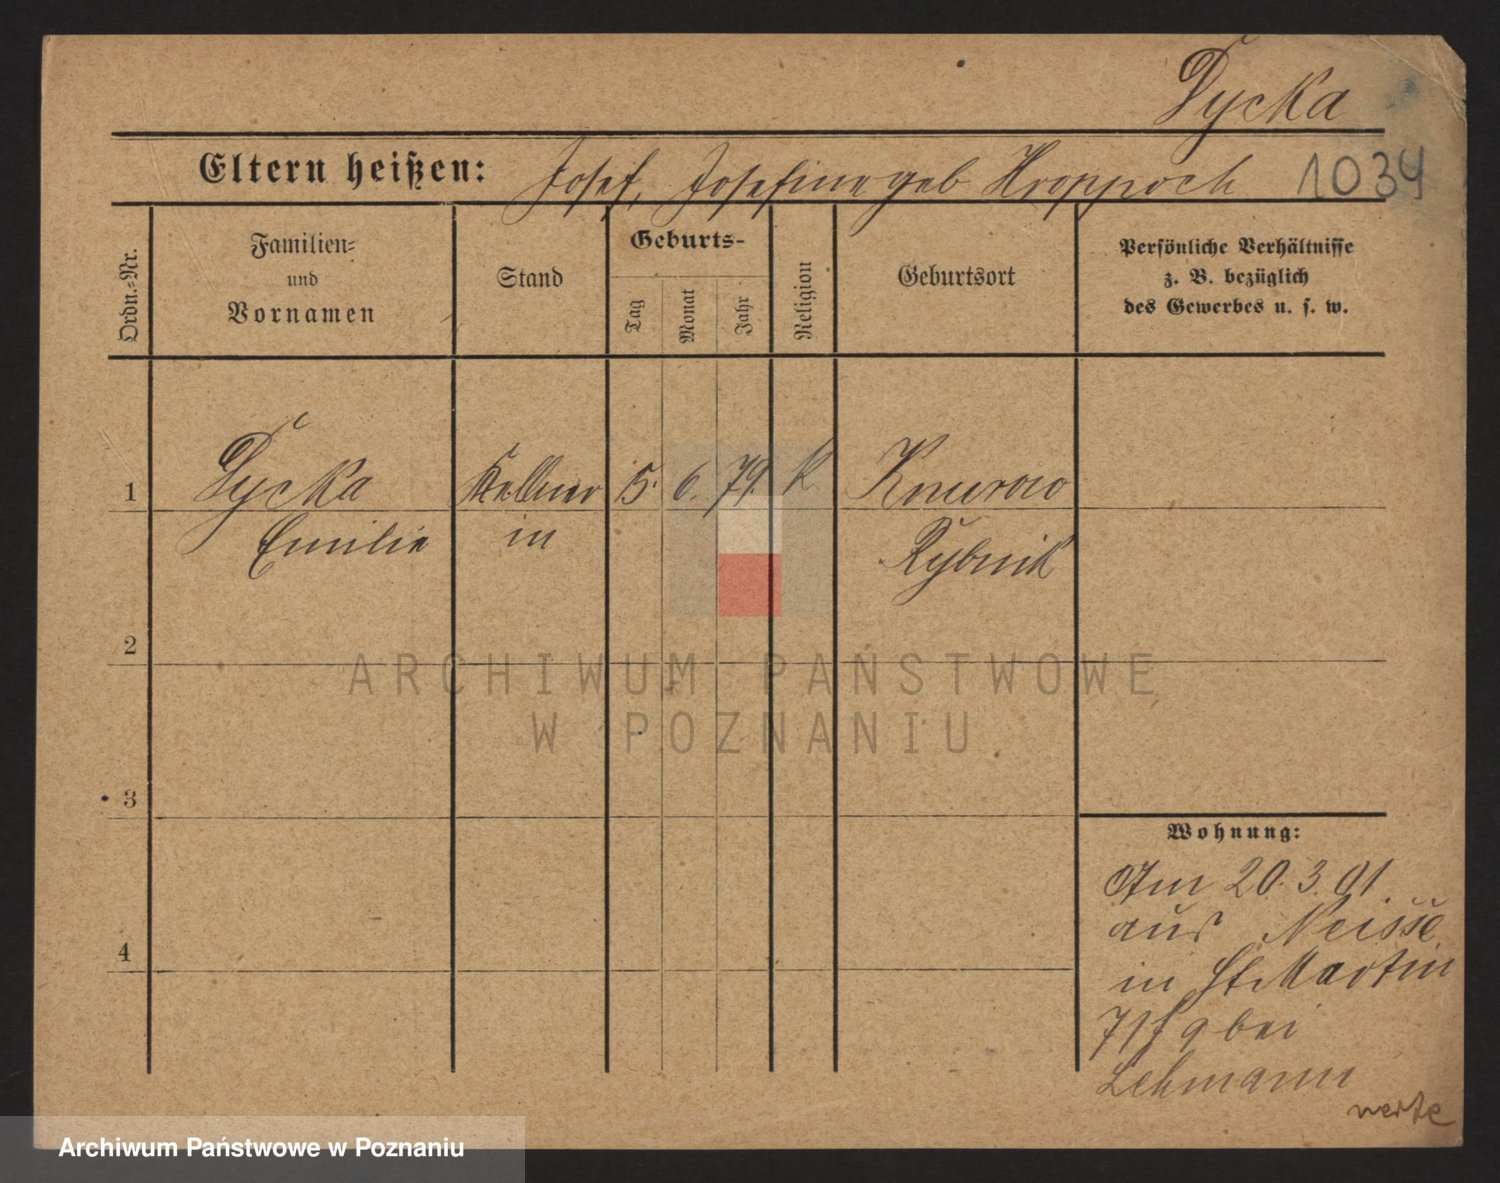 Tycka
Eltern heißen: Josef, Josefine geb Hroppoch 1034
Ordn.-Nr.
Familien-
und
Vornamen
Stand
Geburts-
Tag
Monat
Jahr
Religion
Geburtsort
Persönliche Verhältnisse
z. B. bezüglich
des Gewerbes u. s. w.
1 Tycka Kellner 15. 6. 79. K Knurow
Emilie in Rybnik
2
ARCHIWUM PAŃSTWOWE
W POZNANIU
3
Wohnung:
Am 20.3.01.
aus Neisse
in St Martin
4
bei
Lehmann
Archiwum Państwowe w Poznaniu